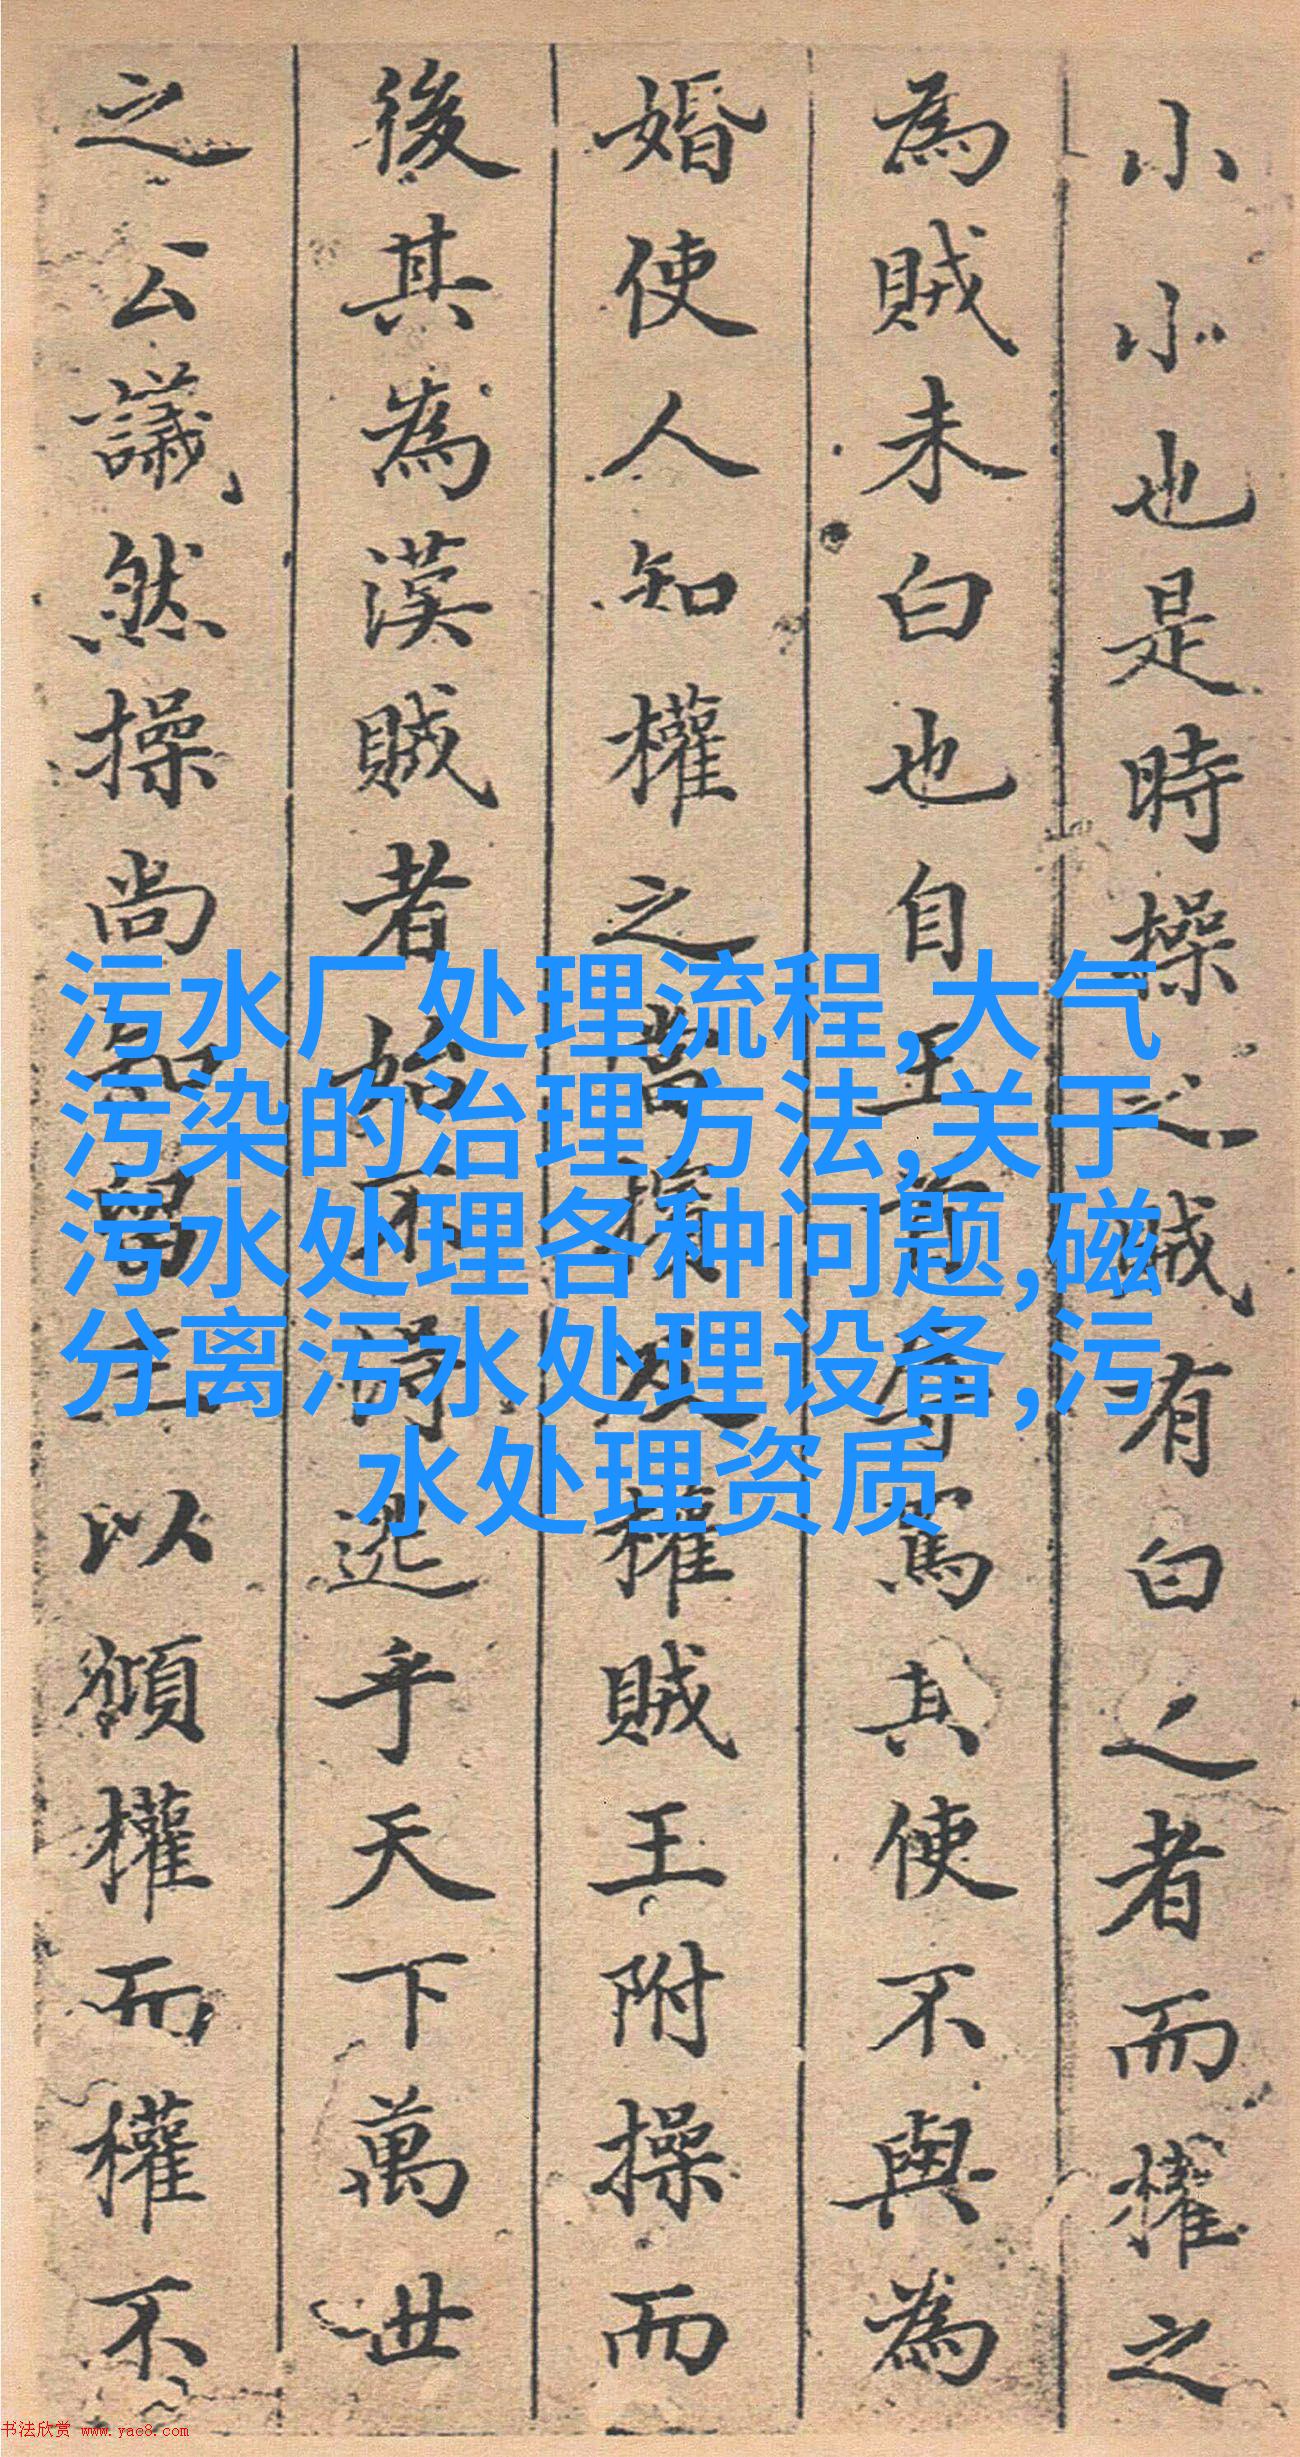 小小也是時操之賊有白之者而權之
為賊未白也自王罵其使不與為
婚使人知權之權賊王附操而
後其為漢賊者始不得逃乎天下萬世
之公議然操尚以權而權不
污水厂处理流程,大气
污染的治理方法,关于
污水处理各种问题,磁
分离污水处理设备,污
水处理资质
书法欣赏 www.yac8.com